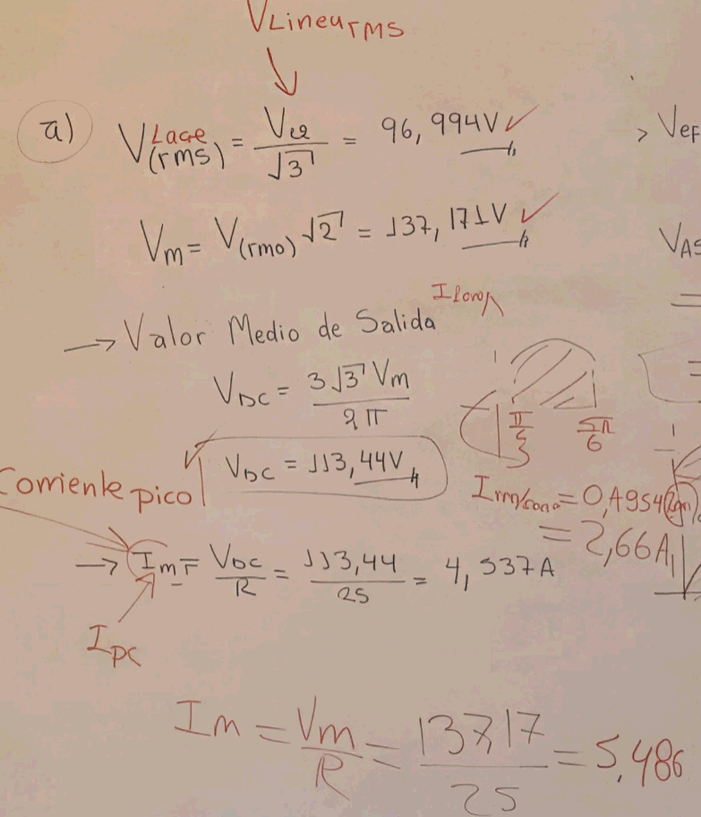 VLinearms
a) VLage(rms) = Vll/√3 = 96,994V ✓
> Vef
Vm = V(rmo) √2 = 137,171V ✓
VAS
→ Valor Medio de Salida
VDC = 3√3 Vm / 2π
π/3 5π/6
VDC = 113,44V
Corriente pico
= 0,4954
= 2,66A
→ Im = VDC/R = 113,44/25 = 4,537A
IPC
Im = Vm/R = 137,17/25 = 5,486